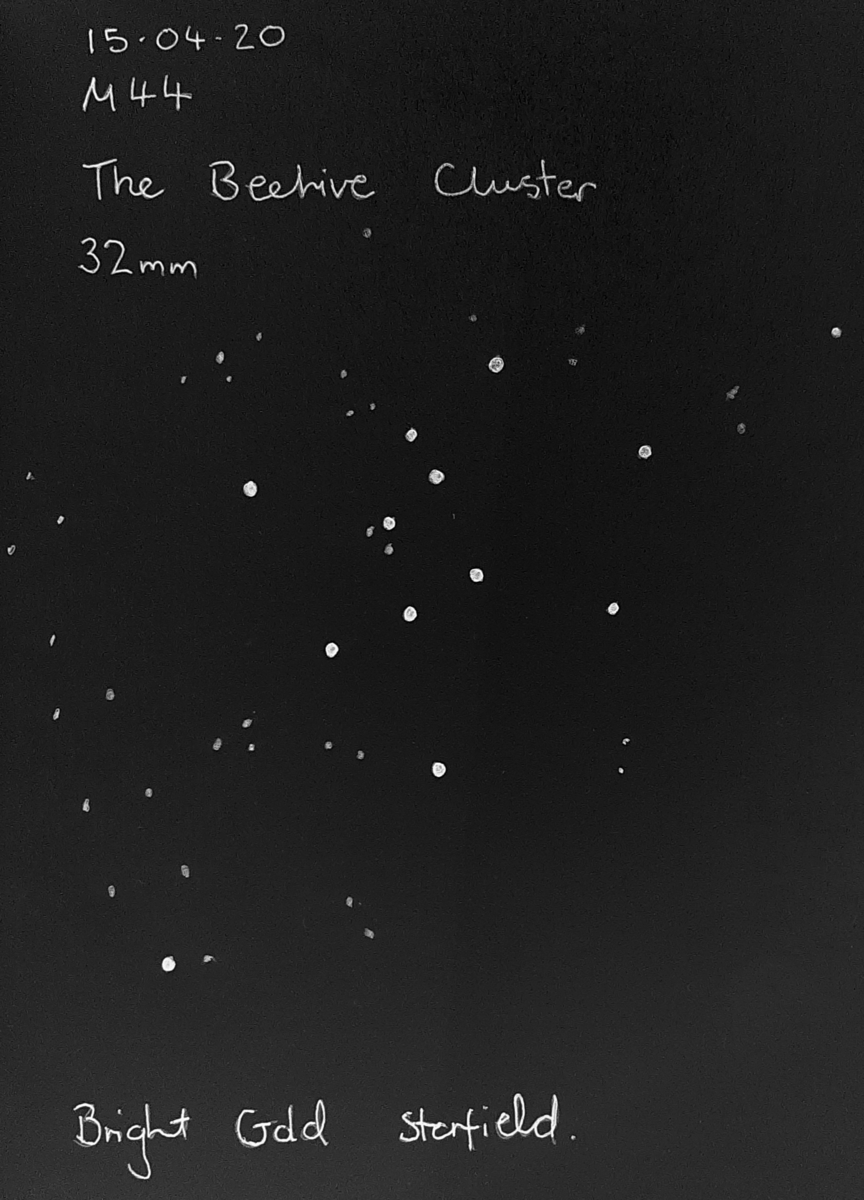 15·04-20
M44
The Beehive Cluster
32mm
Bright Gold starfield.